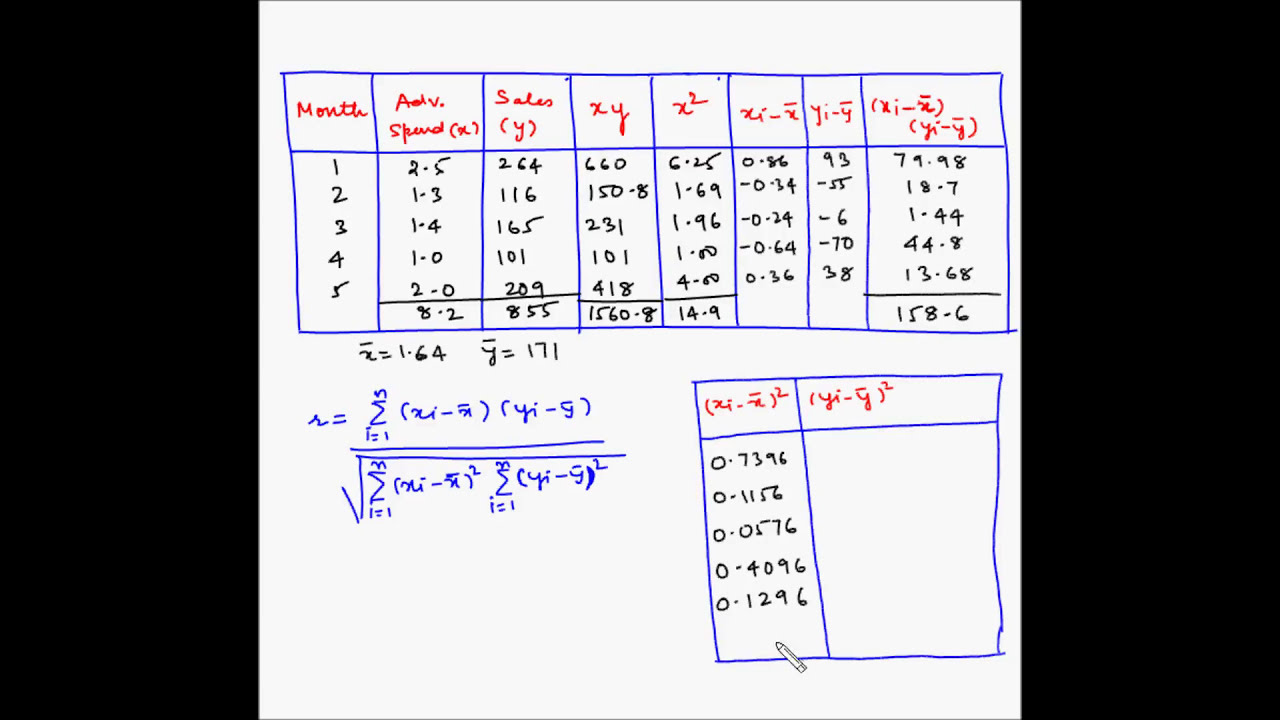 Month Adv. Spend (x) Sales (y) xy x² xi-x̄ yi-ȳ (xi-x̄)(yi-ȳ)
1 2.5 264 660 6.25 0.86 93 79.98
2 1.3 116 150.8 1.69 -0.34 -55 18.7
3 1.4 165 231 1.96 -0.24 -6 1.44
4 1.0 101 101 1.00 -0.64 -70 44.8
5 2.0 209 418 4.00 0.36 38 13.68
8.2 855 1560.8 14.9 158.6
x̄=1.64 ȳ=171
r= n Σ i=1 (xi-x̄)(yi-ȳ)
√ n Σ i=1 (xi-x̄)² n Σ i=1 (yi-ȳ)²
(xi-x̄)² (yi-ȳ)²
0.7396
0.1156
0.0576
0.4096
0.1296